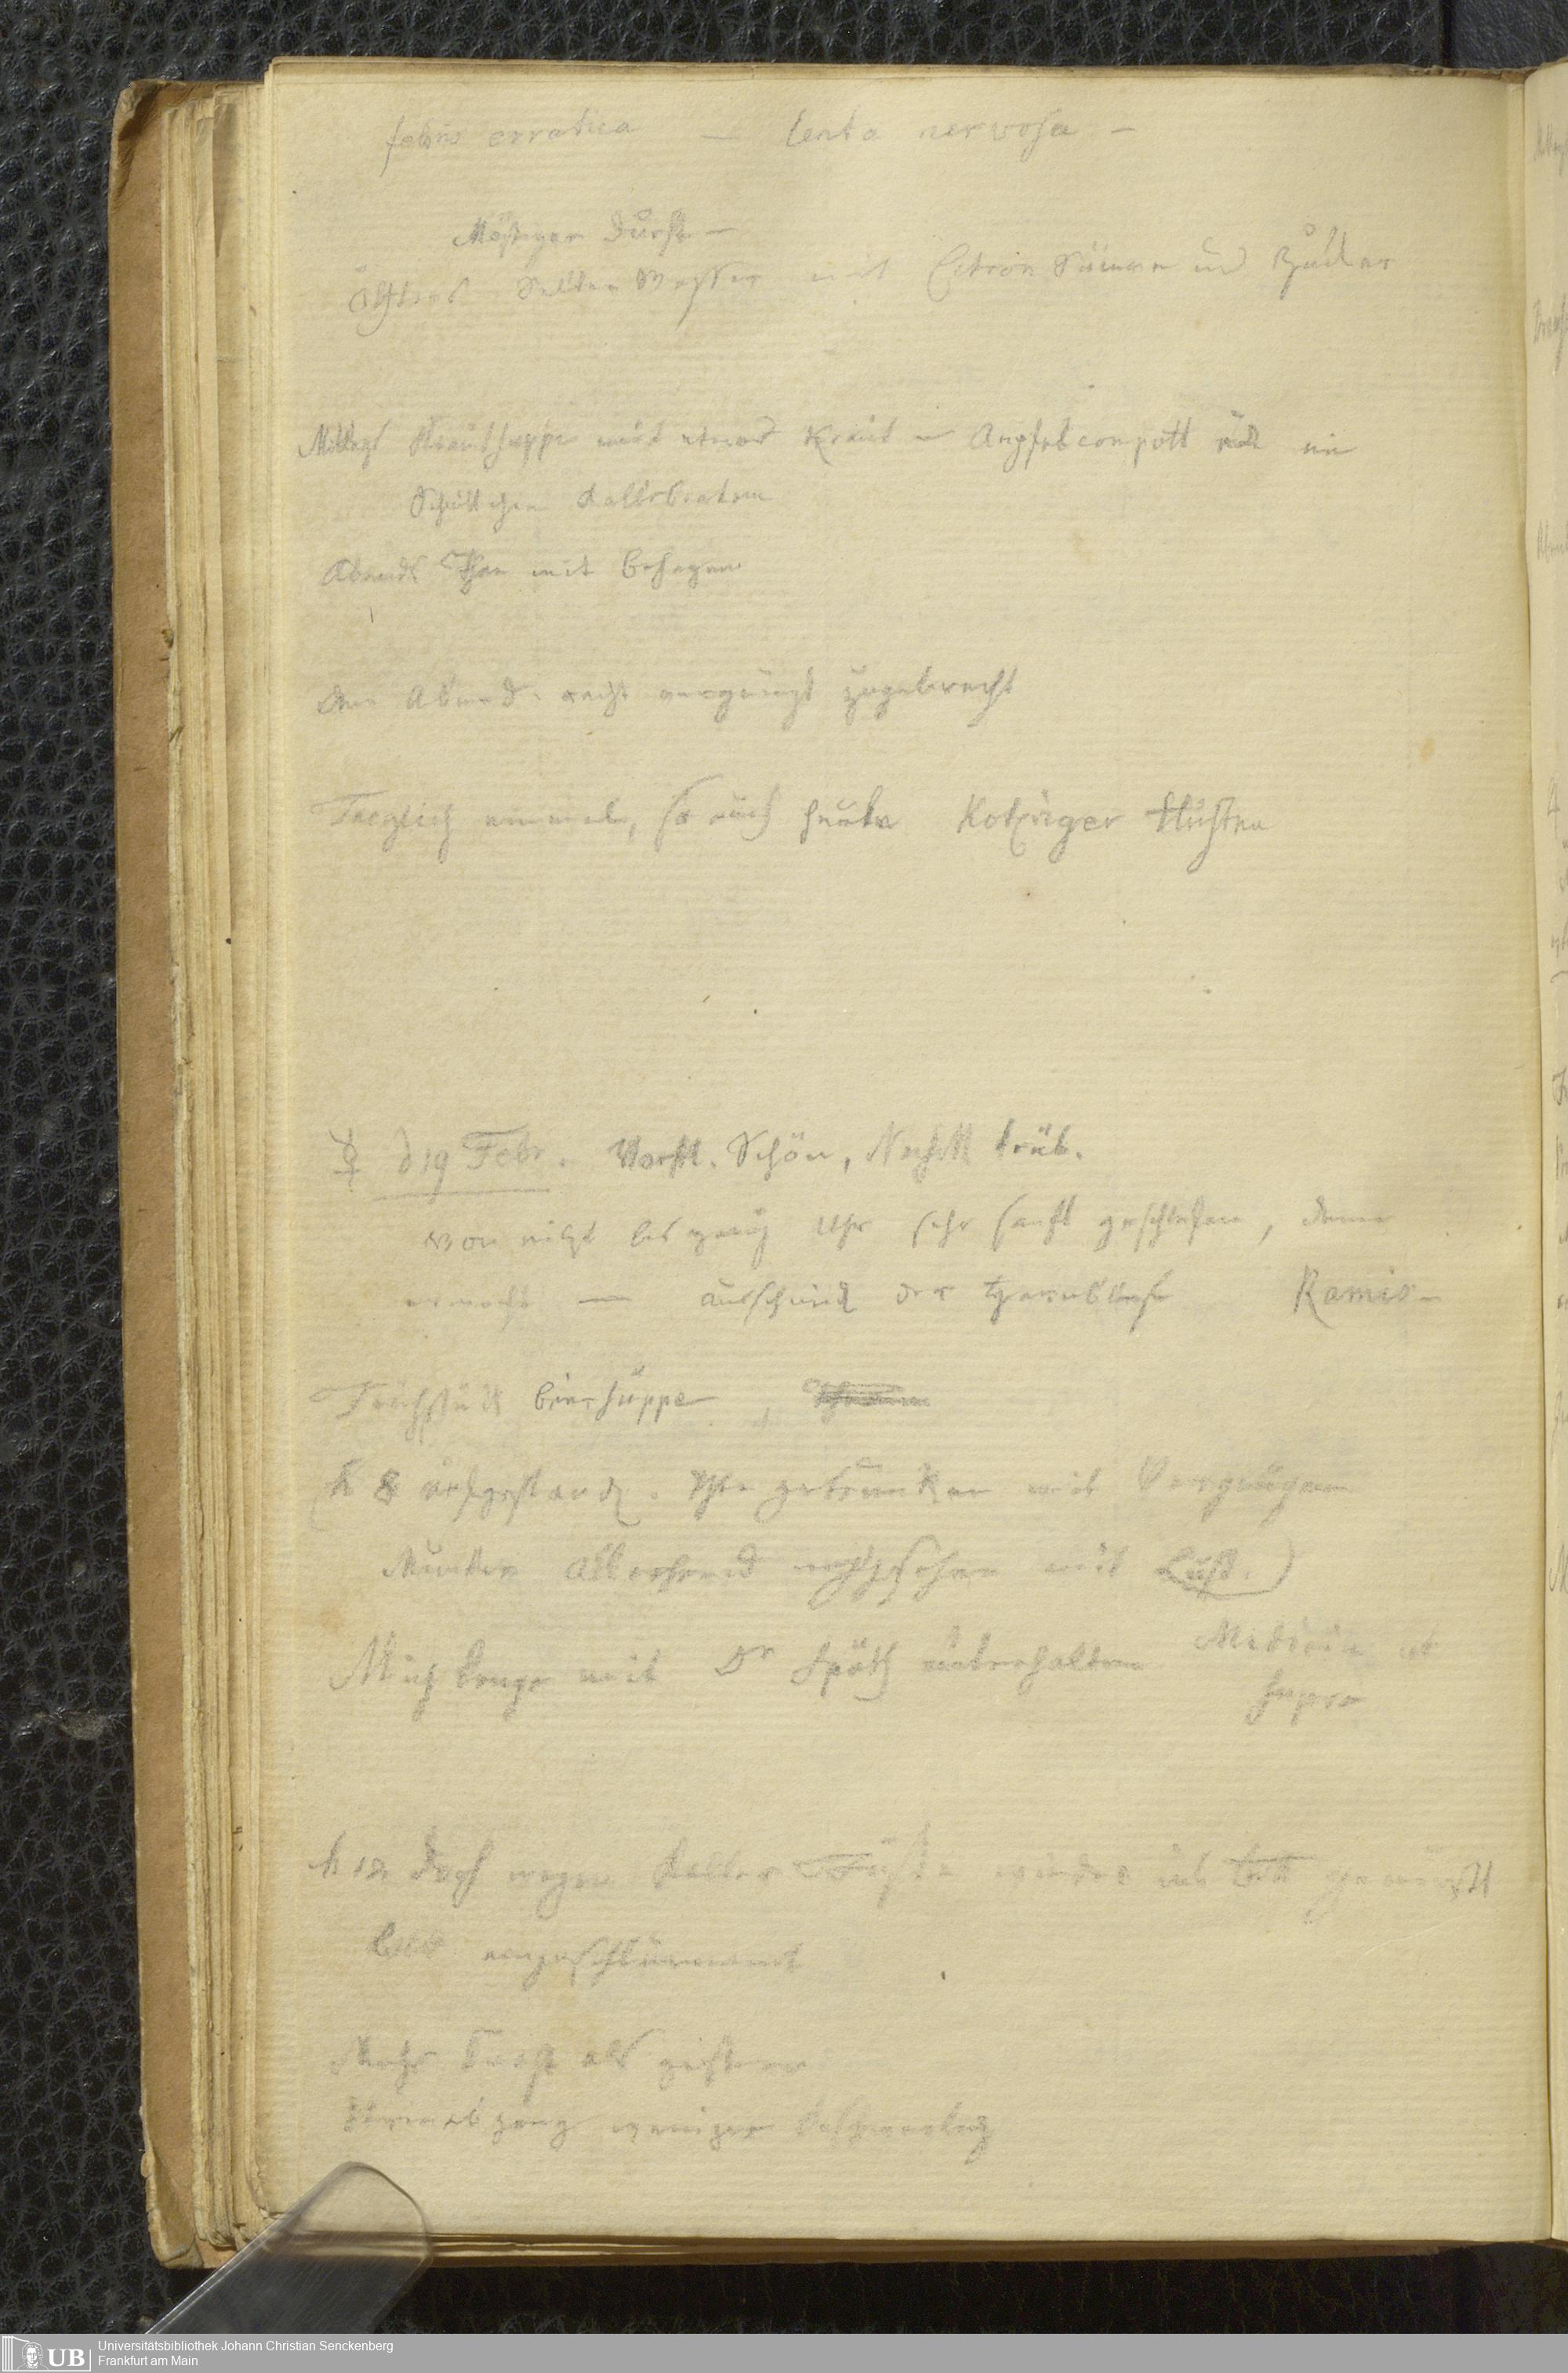 febris erratica — lenta nervosa —
Mässiger Durst —
öfters Selter Wasser mit Citron Säure und Zucker
Mittags Krautsuppe mit etwas Kraut Aepfelcompott und ein
Stückchen Kalbsbraten
Abends Thee mit Behagen
Den Abend recht vergnügt zugebracht
Taeglich einmal, so auch heute Kotziger Husten
☿ d 19 Febr. Vorm. Schön, Nachm trüb.
Von bis Uhr sehr sanft geschlafen, dann
erwacht — der Ramis —
Frühstück biersuppe,
h 8 aufgestand. Thee getrunken mit Vergnügen
Munter allerhand mit Lust.)
Mich lange mit Dr Späth unterhalten Medicin ut
supra
h 12 doch wegen kalter Füsse wieder ins bett gemüsst
bald eingeschlummert
Mehr als gestern
Urinabgang weniger beschwerlich
Universitätsbibliothek Johann Christian Senckenberg
Frankfurt am Main
UB